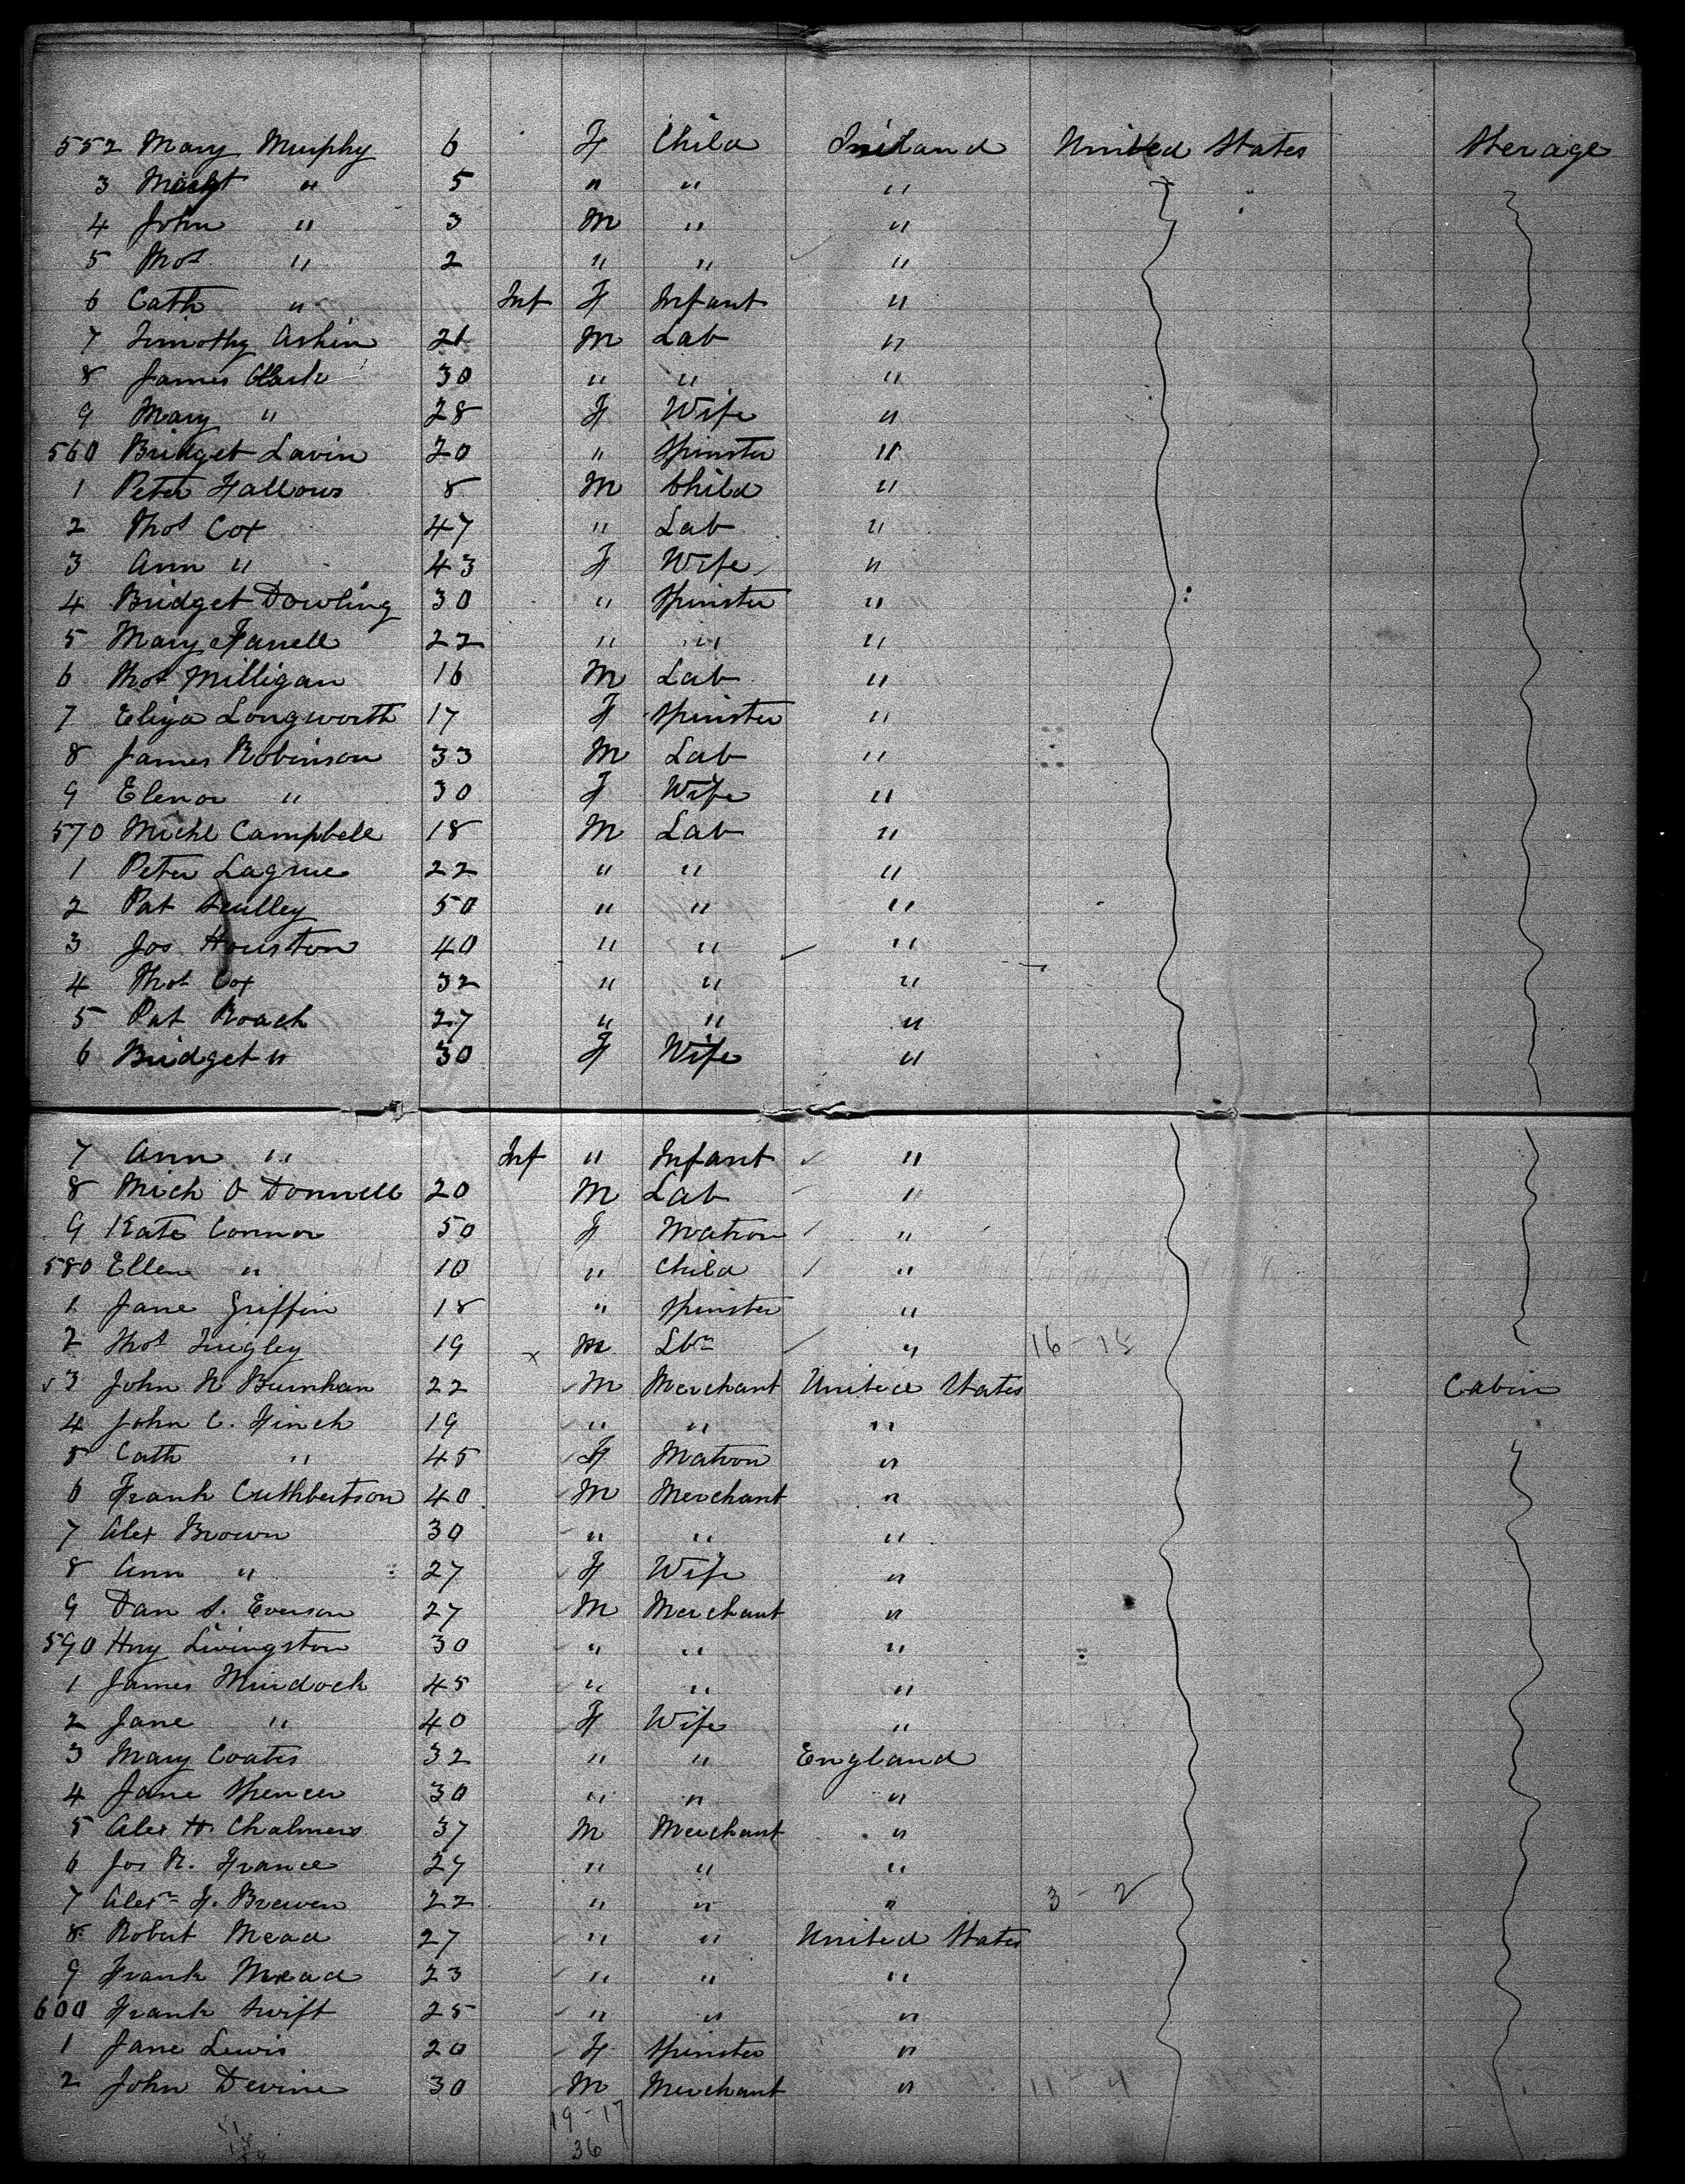 552 Mary Murphy 6 F Child Ireland United States Sterage
3 Margt " 5 " " "
4 John " 3 M " "
5 Thos " 2 " " "
6 Cath " Inf F Infant "
7 Timothy Askin 21 M Lab "
8 James Clark 30 " " "
9 Mary " 28 F Wife "
560 Bridget Lavin 20 " Spinster "
1 Peter Fallows 8 M Child "
2 Thos Cox 47 " Lab "
3 Ann " 43 F Wife "
4 Bridget Dowling 30 " Spinster "
5 Mary Farrell 22 " " "
6 Thos Milligan 16 M Lab "
7 Eliza Longworth 17 F Spinster "
8 James Robinson 33 M Lab "
9 Elenor " 30 F Wife "
570 Michl Campbell 18 M Lab "
1 Peter Lagrue 22 " " "
2 Pat Scully 50 " " "
3 Jos Houston 40 " " "
4 Thos Cox 32 " " "
5 Pat Roach 27 " " "
6 Bridget " 30 F Wife "
7 Ann " Inf " Infant "
8 Mich O Donnell 20 M Lab "
9 Kate Connor 50 F Matron "
580 Ellen " 10 " Child "
1 Jane Griffin 18 " Spinster "
2 Thos Quigley 19 x M Lbr "
3 John N Burnham 22 M Merchant United States Cabin
4 John C. Finch 19 " " "
5 Cath " 45 F Matron "
6 Frank Cuthbertson 40 M Merchant "
7 Alex Brown 30 " " "
8 Ann " 27 F Wife "
9 Dan S. Everson 27 M Merchant "
590 Hny Livingston 30 " " "
1 James Murdock 45 " " "
2 Jane " 40 F Wife "
3 Mary Coates 32 " " England
4 Jane Spencer 30 " " "
5 Alex H. Chalmers 37 M Merchant "
6 Jos R. France 27 " " "
7 Alexr F. Brewer 22 " " " 3 - 2
8 Robert Mead 27 " " United States
9 Frank Mead 23 " " "
600 Frank Swift 25 " " "
1 Jane Lewis 20 F Spinster "
2 John Devine 30 M Merchant " 11 - 4
19 - 17
36